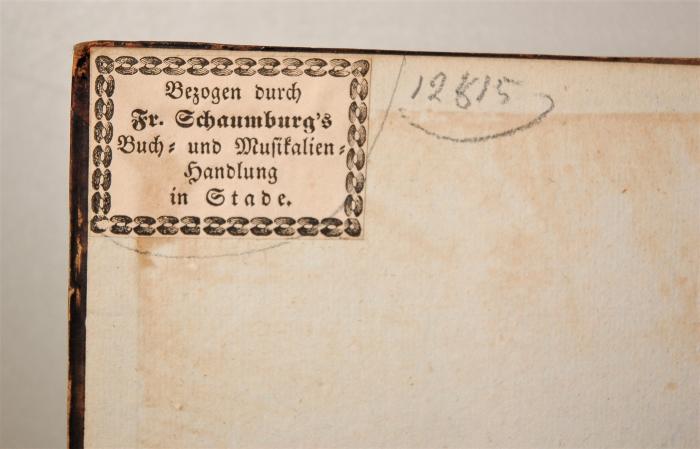 Bezogen durch
Fr. Schaumburg's
Buch- und Musikalien-
Handlung
in Stade.
12815